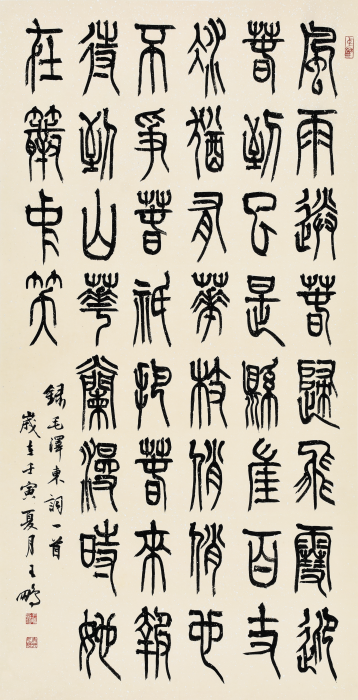 風雨送春歸飛雪迎
春到已是縣崖百丈
冰猶有華枝俏俏也
不爭春祇把春來報
待到山華蘭漫時她
在叢中笑
錄毛澤東詞一首
歲在壬寅夏月王鵬